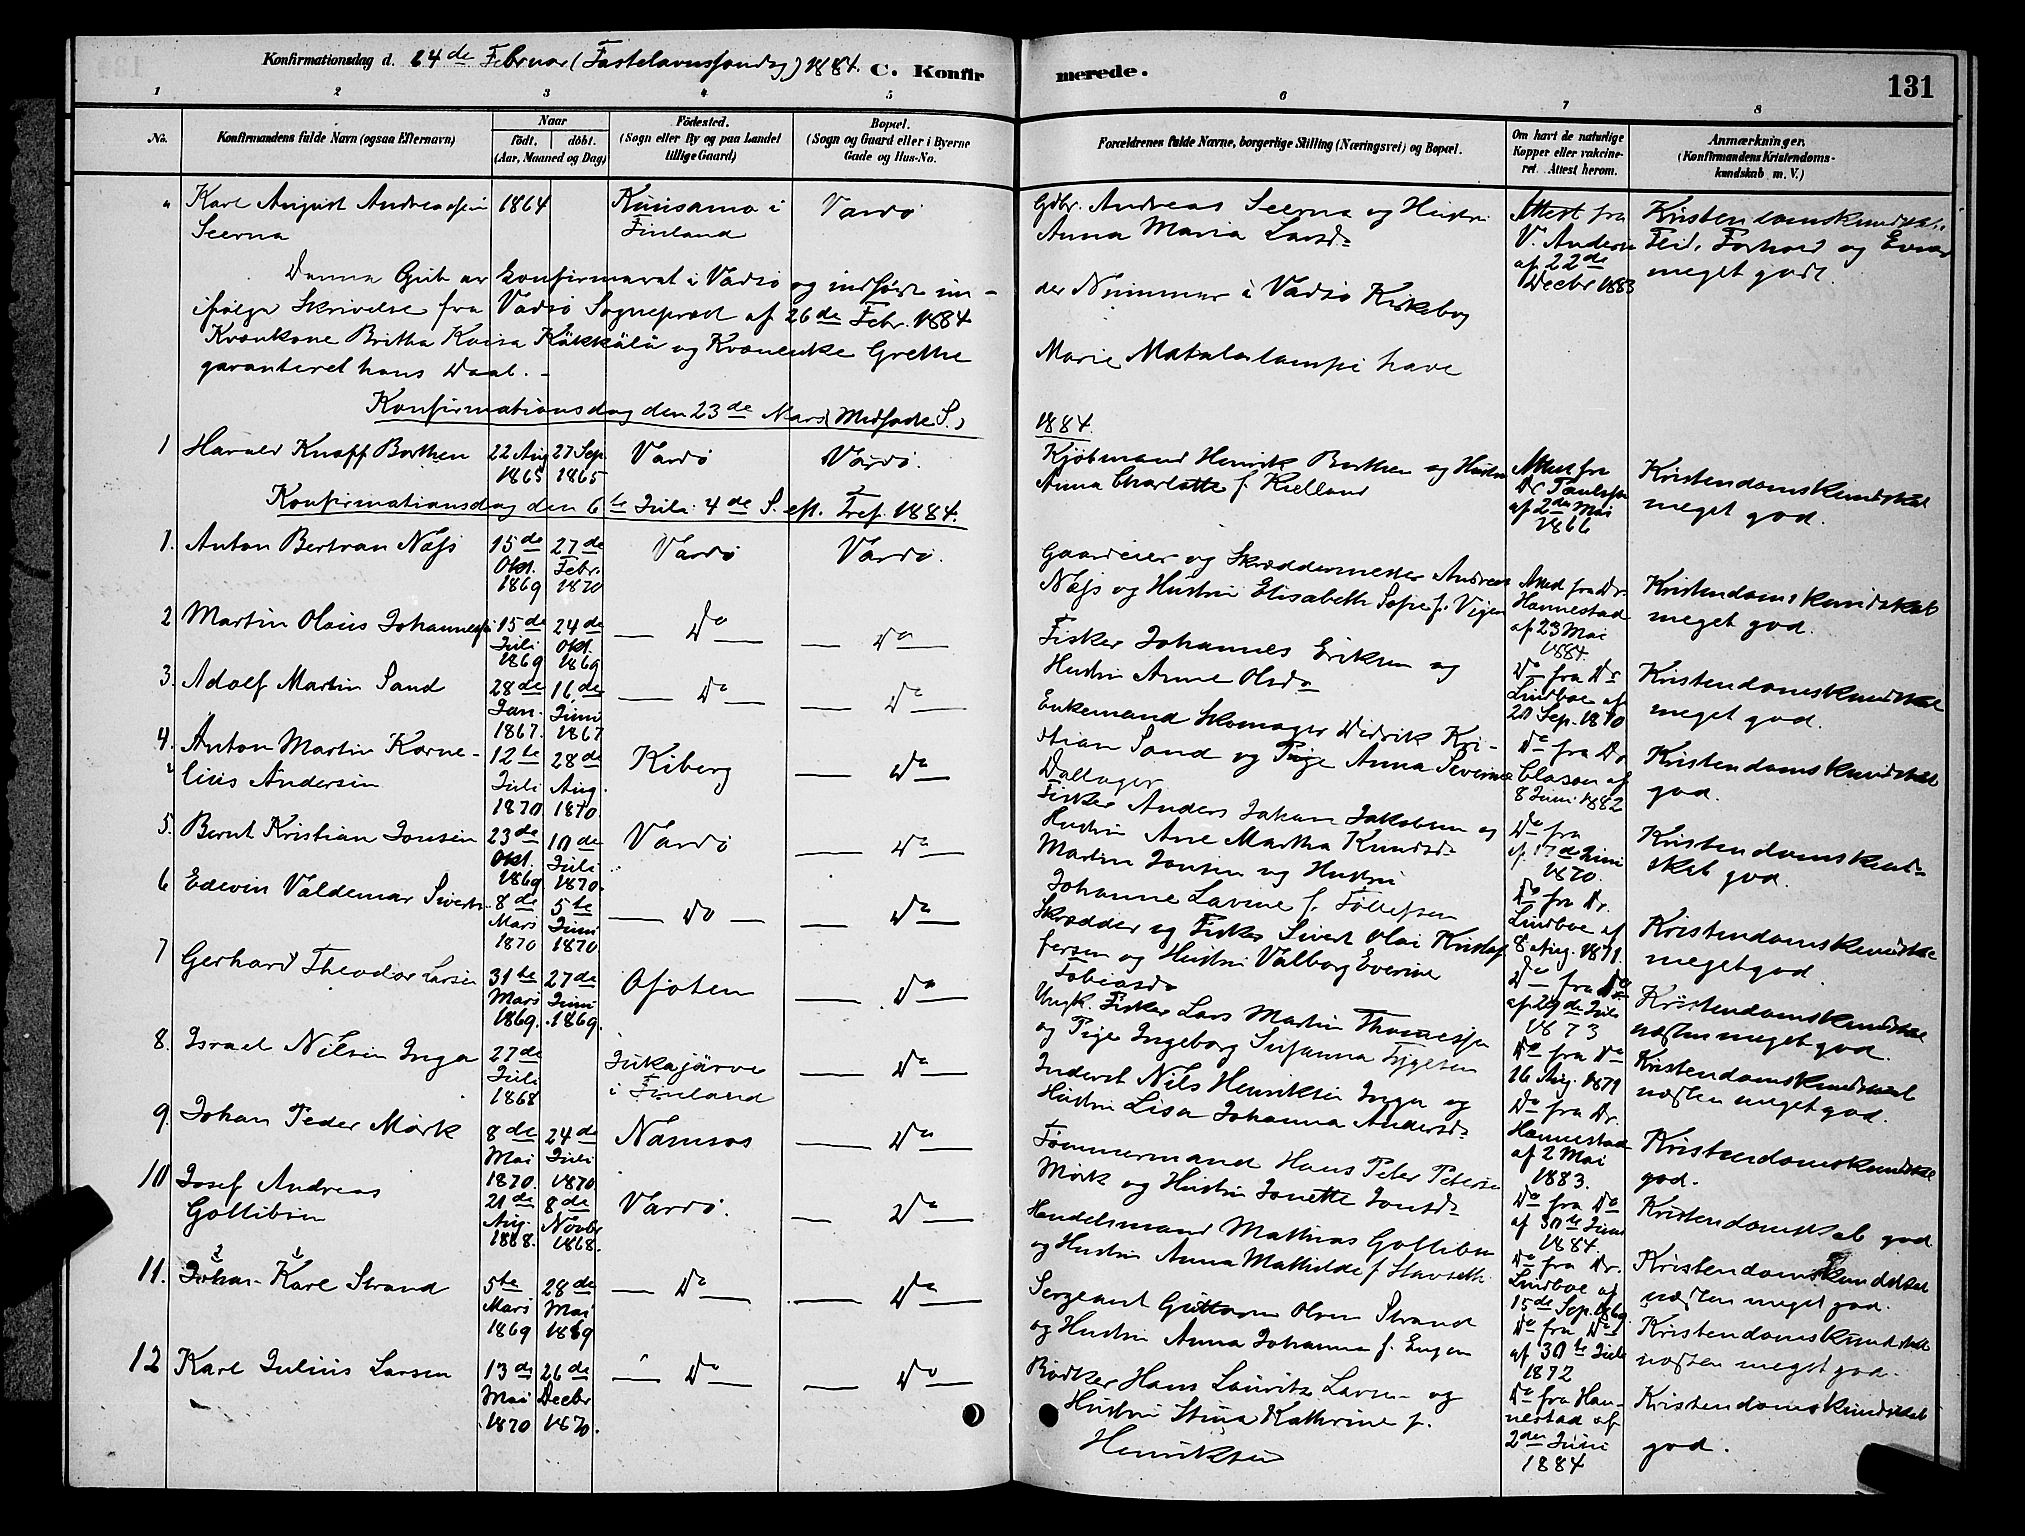 Konfirmationsdag d. 24de Februar (Fastelavnssøndag) 1884. C. Konfirmerede. 131
1 2 3 4 5 6 7 8
No. Konfirmandens fulde Navn (ogsaa Efternavn) Naar födt. döbt. (Aar, Maaned og Dag) Födested. (Sogn eller By og paa Landet tillige Gaard) Bopæl. (Sogn og Gaard eller i Byerne Gade og Hus-No. Forældrenes fulde Navne, borgerlige Stilling (Næringsvei) og Bopæl. Om havt de naturlige Kopper eller vakcineret. Attest herom. Anmærkninger. (Konfirmandens Kristendomskundskab m. V.)
" Karl August Andreassen Seerna 1864 Kuusamo i Finland Vardö Gdbr. Andreas Seerna og Hustru Anna Maria Larsd. Attest fra V. Andersen af 22de Decbr 1883 Kristendomskundskab, Flid, Forhold og Evner meget godt.
Denne Gut er konfirmeret i Vadsö og indført under Nummer i Vadsö Kirkebog
ifølge Skrivelse fra Vadsö Sogneprest af 26de Febr. 1884
Kvænkone Britha Kaisa Käkkälä og Kvænenke Grethe Marie Matalalampi have
garanteret hans Daab. -
Konfirmationsdag den 23de Mars (Midfaste S.) 1884.
1 Harald Knoff Borthen 22 Aug 1865 27 Sep. 1865 Vardö Vardö. Kjöbmand Henrik Borthen og Hustru Anna Charlotte f. Kielland Attest fra Dr af 2den Mai 1866 Kristendomskundskab meget god.
Konfirmationsdag den 6te Juli 4de S. eft. Tref. 1884.
1. Anton Bertran Næss 15de Okt. 1869 27de Febr. 1870 Vardö Vardö. Gaardeier og Skræddermester Andreas Næss og Hustru Elisabeth Sofie f. Attest fra Dr. Hannestad af 23 Mai 1884. Kristendomskundskab meget god.
2 Martin Olaus Johannessen 15de Juli 1869 24de Okt. 1869 — Do — — Do — Fisker Johannes Eriksen og Hustru Anne Olsda Do fra Dr Lindboe af 20 Sep. 1870 Kristendomskundskab meget god.
3. Adolf Martin Sand 28de Jan. 1867. 16de Juni 1867 — Do — — Do — Enkemand Skomager Didrik Kristian Sand og Pige Anna Severine Dallager Do fra Dr Clason af 8 Juni 1882 Kristendomskundskab god.
4. Anton Martin Kornelius Andersen 12te Juli 1870 28de Aug. 1870. Kiberg — Do — Fisker Anders Johan Jakobsen og Hustru Ane Martha Knudsd. Do fra af 17de Juni 1870. Kristendomskundskab god.
5. Bernt Kristian Jonsen 23de Okt. 1869 10de Juli 1870. Vardö — Do — Martin Jonsen og Hustru Johanne Lavine f. Tollefsen Do fra Dr. Lindboe af 8 Aug. 1871. Kristendomskundskab meget god.
6 Edevin Valdemar Sivertsen 8de Mars 1870 5te Juni 1870 — Do — — Do — Skrædder og Fisker Sivert Olai Kristoffersen og Hustru Valborg Everine Tobiasda Do fra Do af 29de Juli 1873 Kristendomskundskab næsten meget god.
7 Gerhard Theodor Larsen 31te Mars 1869. 27de Juni 1869. Ofoten — Do — Ungk. Fisker Lars Martin Thomassen og Pige Ingeborg Susanna Tygesen Do fra Do 16 Aug. 1871 Kristendomskundskab næsten meget god.
8. Israel Nilsen Inga 27de Juli 1868 Jukajärve i Finland — Do — Inderst Nils Henriksen Inga og Hustru Lisa Johanna Andersd. Do fra Dr. Hannestad af 2 Mai 1883. Kristendomskundskab god.
9. Johan Peder Mörk 8de Mai 1870. 24de Juli 1870 Namsos — Do — Tømmermand Hans Peter Petersen Mörk og Hustru Jonette Jonsd. Do fra Do af 30te Juni 1884. Kristendomskab god
10 Josef Andreas Gottlibsen 21de Aug. 1868. 8de Novbr 1868. Vardö. — Do — Handelsmand Mathias Gottlibsen og Hustru Anna Mathilde f. Stavseth Do fra Dr. Lindboe af 15de Sep. 1869. Kristendomskundskab næsten meget god.
11. Johan Karl Strand 5te Mars 1869 28de Mai 1869 — Do — — Do — Sergeant Guttorm Olsen Strand og Hustru Anna Johanna f. Engen Do fra Do af 30te Juli 1872 Kristendomskundskab næsten meget god.
12 Karl Julius Larsen 13de Mai 1870 26de Decbr 1870. — Do — — Do — Bödker Hans Lauritz Larsen og Hustru Stina Kathrine f. Henriksen Do fra Hannestad af 2den Juni 1884 Kristendomskundskab god.